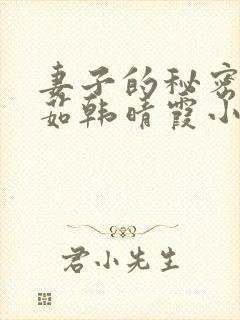 妻子的秘密
茹韩晴霞小
君小先生